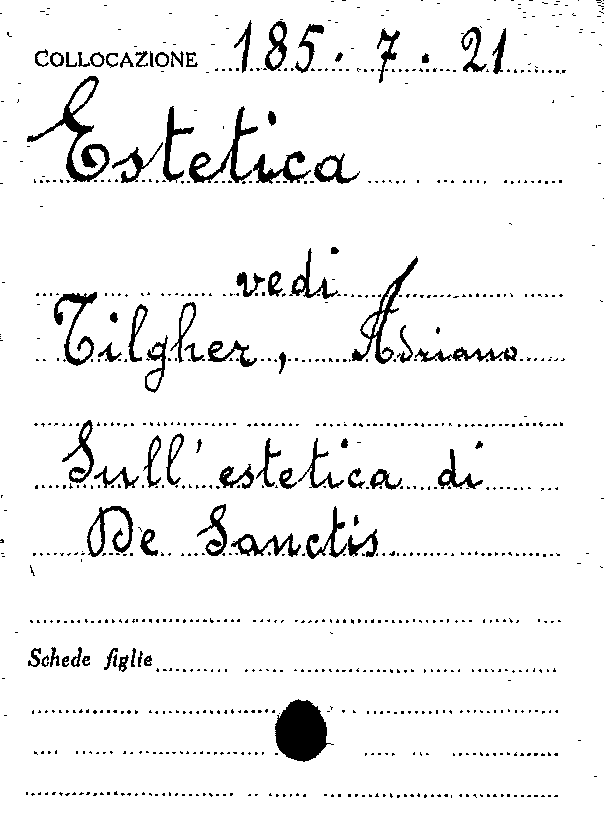 COLLOCAZIONE 185.7.21
Estetica
vedi
Tilgher, Adriano
Sull'estetica di
De Sanctis
Schede figlie